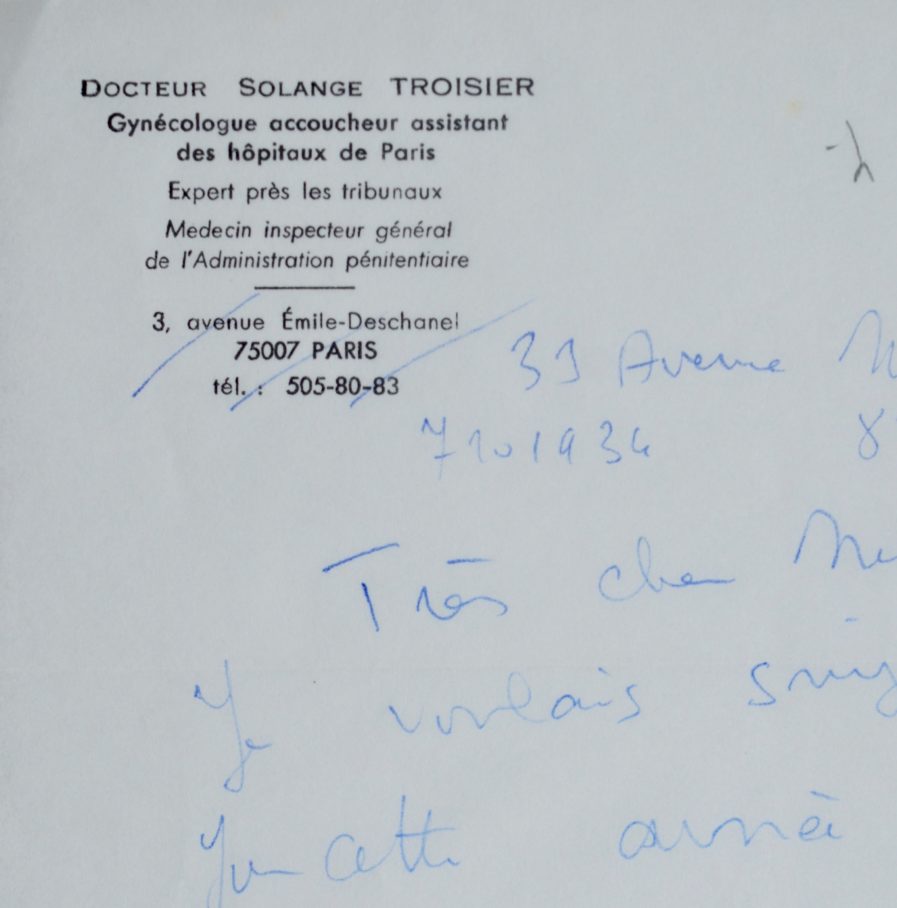 DOCTEUR SOLANGE TROISIER
Gynécologue accoucheur assistant
des hôpitaux de Paris
Expert près les tribunaux
Medecin inspecteur général
de l'Administration pénitentiaire
3, avenue Émile-Deschanel
75007 PARIS
tél. : 505-80-83
33 Avenue
Très cher
Je voulais
cette année